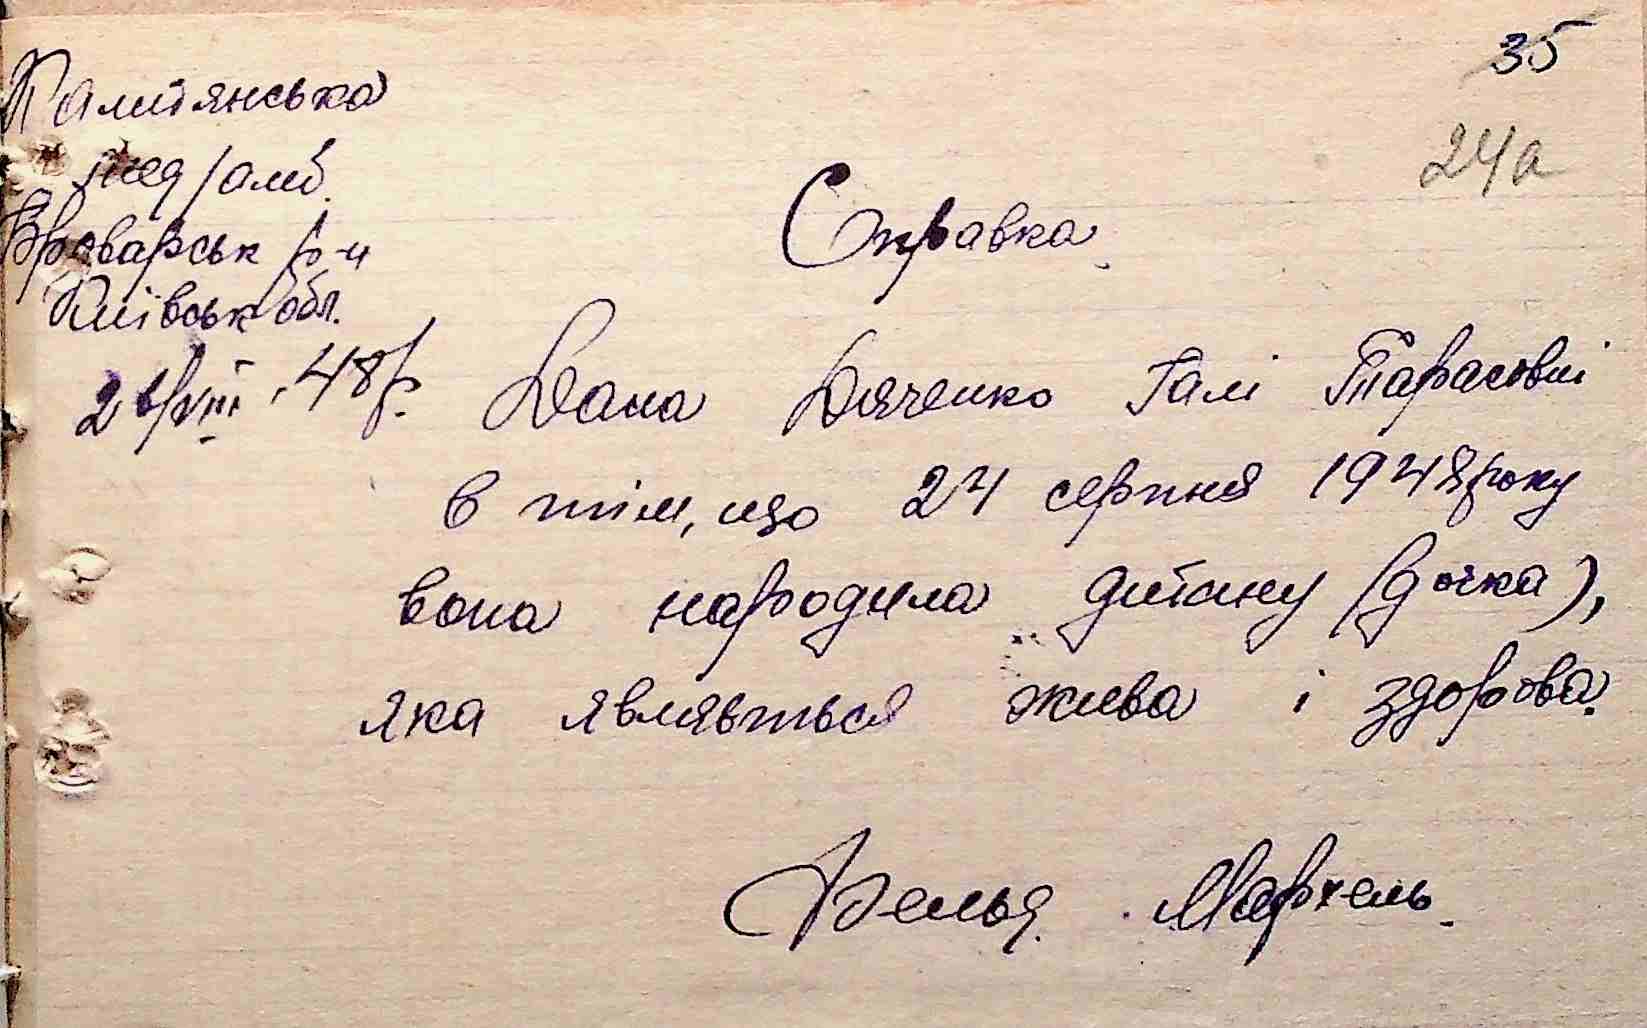 35
24а
Калитянська
мед/амб.
Броварськ р-н
Київськ обл.
26/VIII.48р.
Справка
Дана Дяченко Галі Тарасовні
в тім, що 24 серпня 1948 року
вона народила дитину (дочка),
яка являється жива і здорова.
Мархель